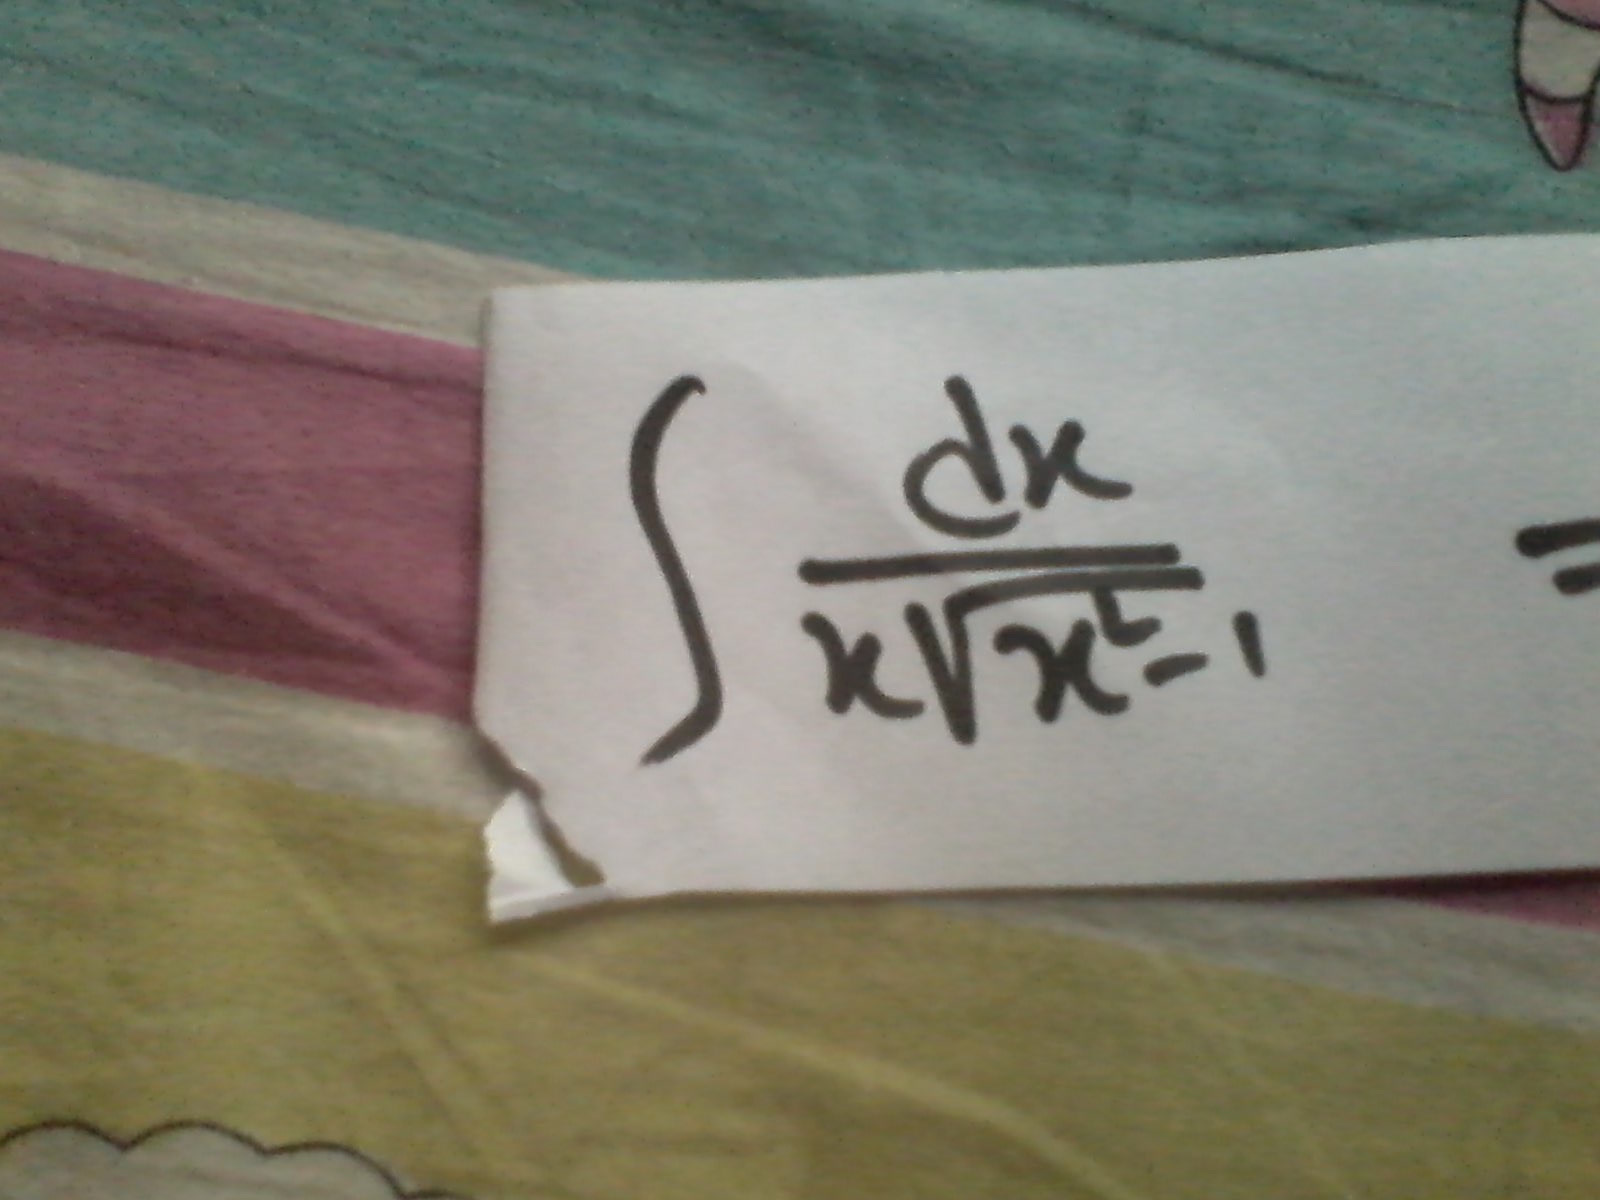 ∫ dx / x√x²-1 =